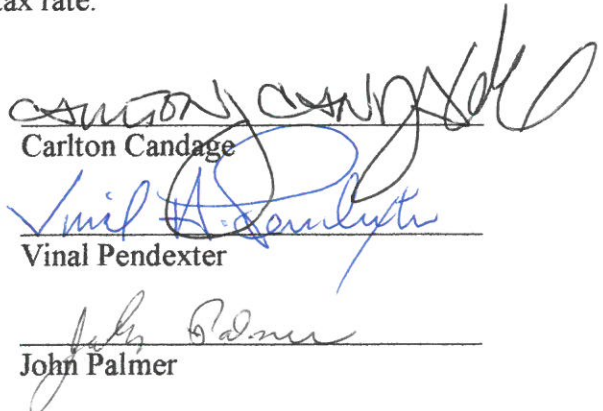 tax rate.
CARLTON CANDAGE
Carlton Candage
Vinal A. Pendexter
Vinal Pendexter
John Palmer
John Palmer